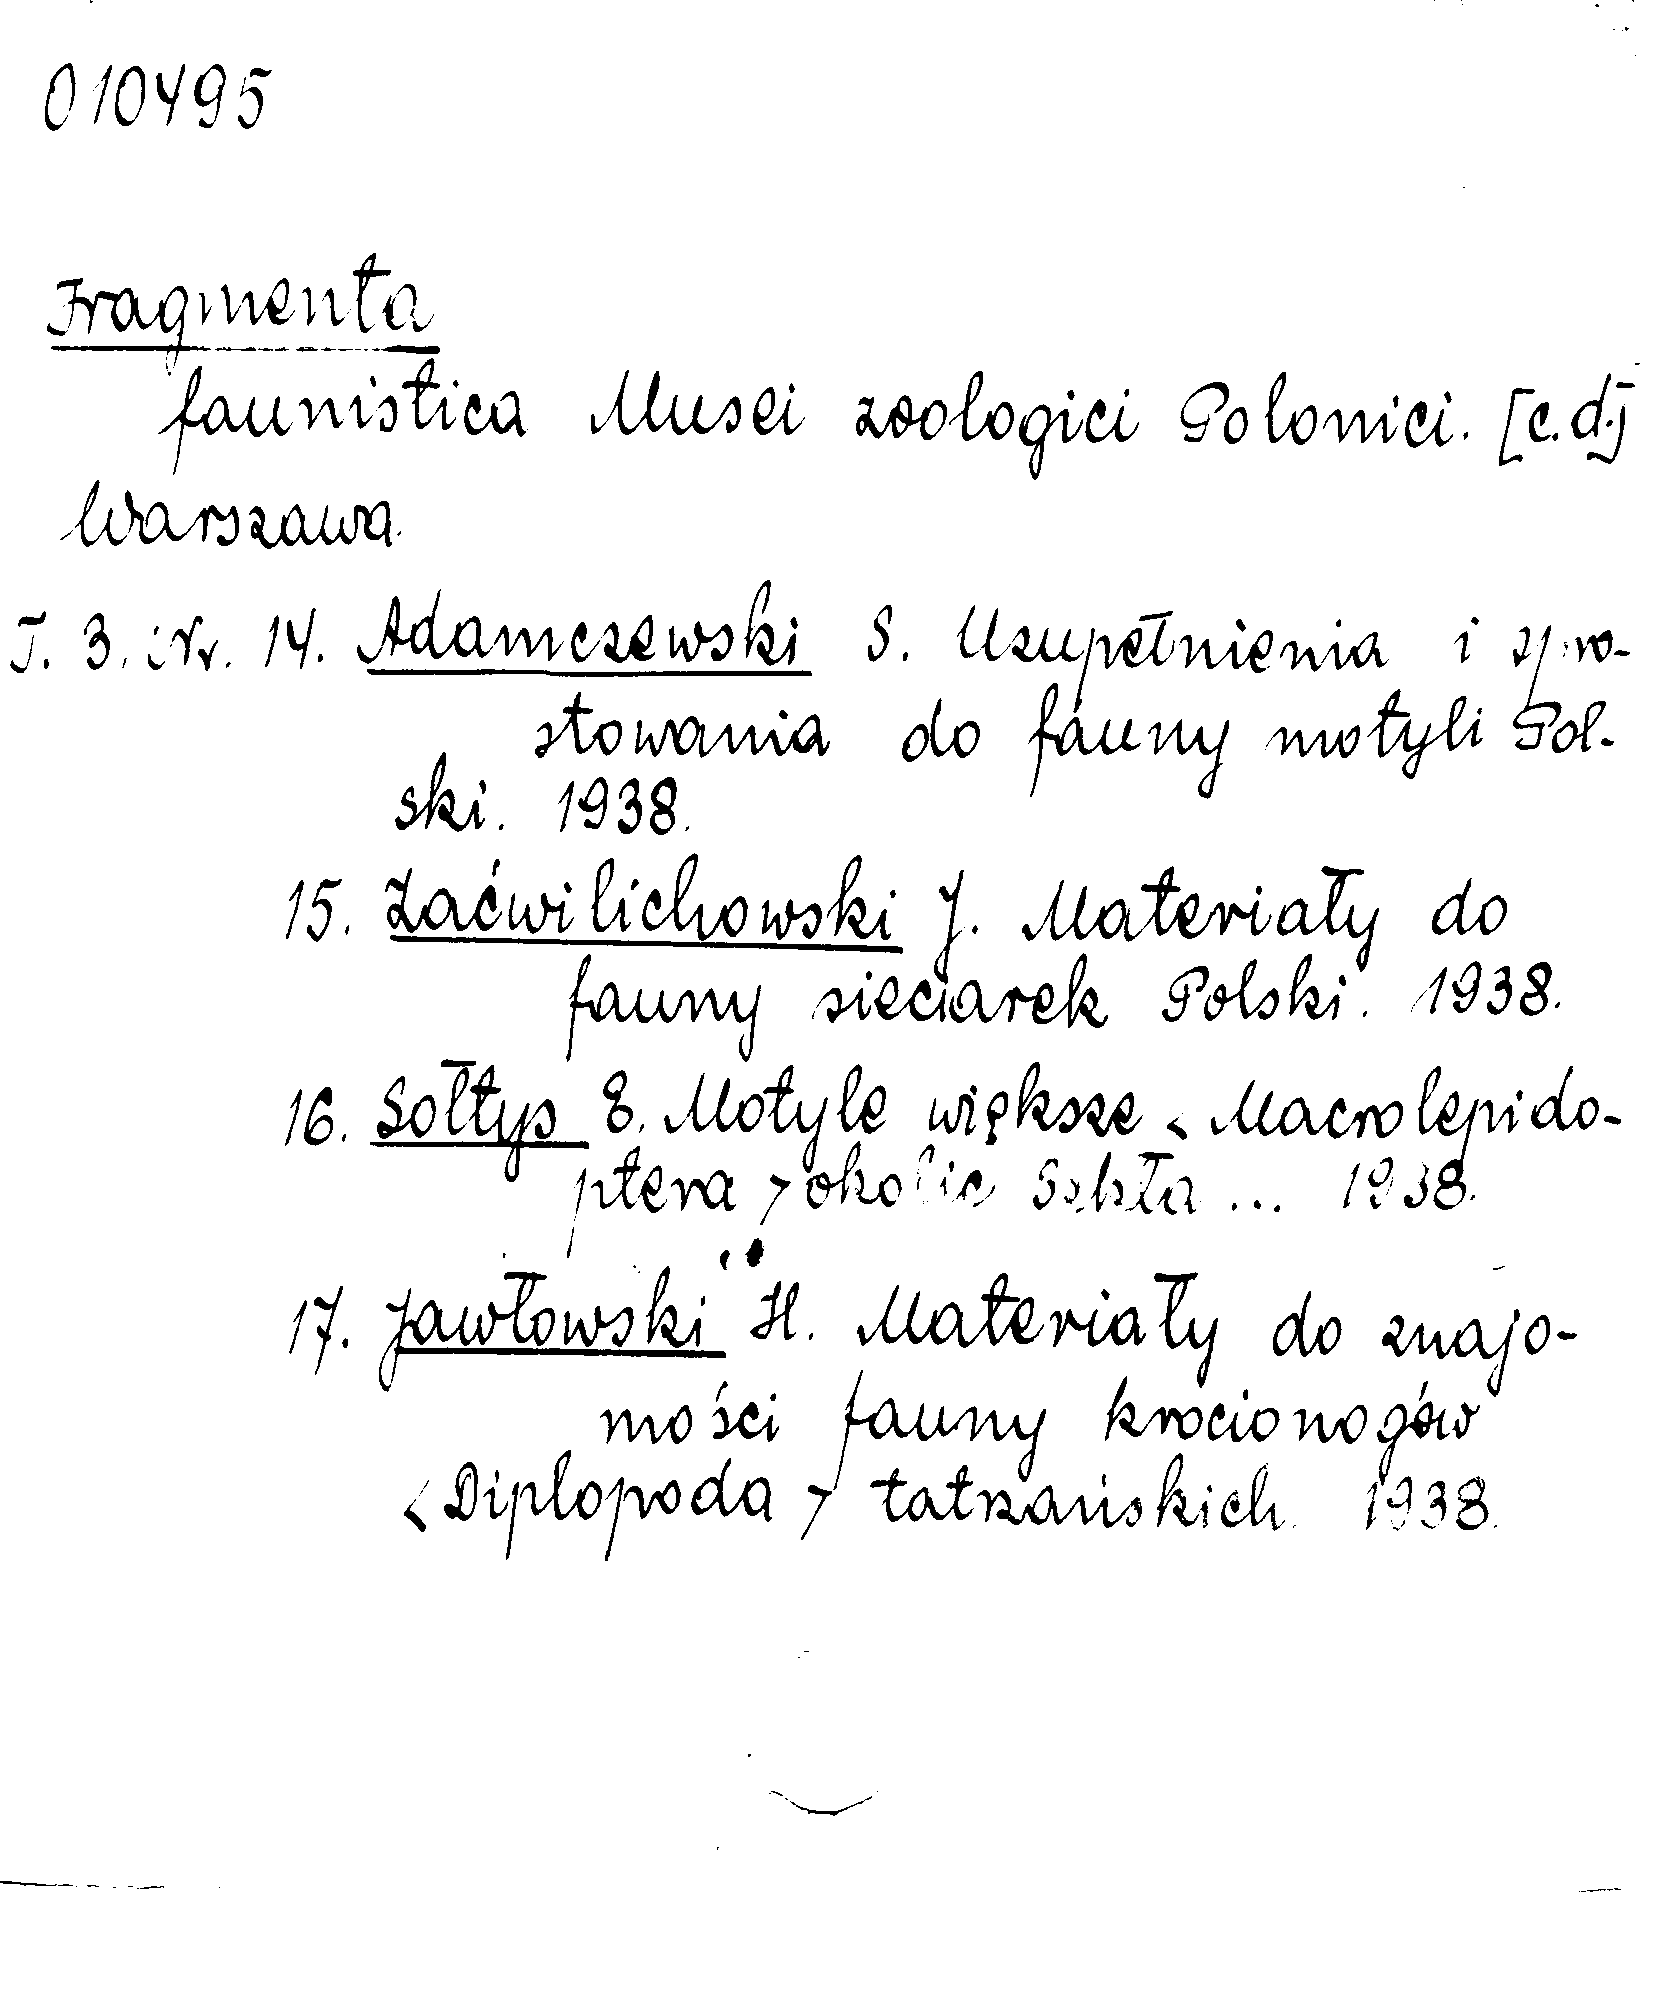 010495
Fragmenta
faunistica Musei zoologici Polonici. [c.d.]
Warszawa.
T. 3. Nr. 14. Adamczewski S. Uzupełnienia i spro-
stowania do fauny motyli Pol-
ski. 1938.
15. Zaćwilichowski J. Materiały do
fauny sieciarek Polski. 1938.
16. Sołtys E. Motyle większe < Macrolepido-
ptera > okolic Szkła ... 1938.
17. Jawłowski H. Materiały do znajo-
mości fauny krocionogów
< Diplopoda > tatrzańskich. 1938.